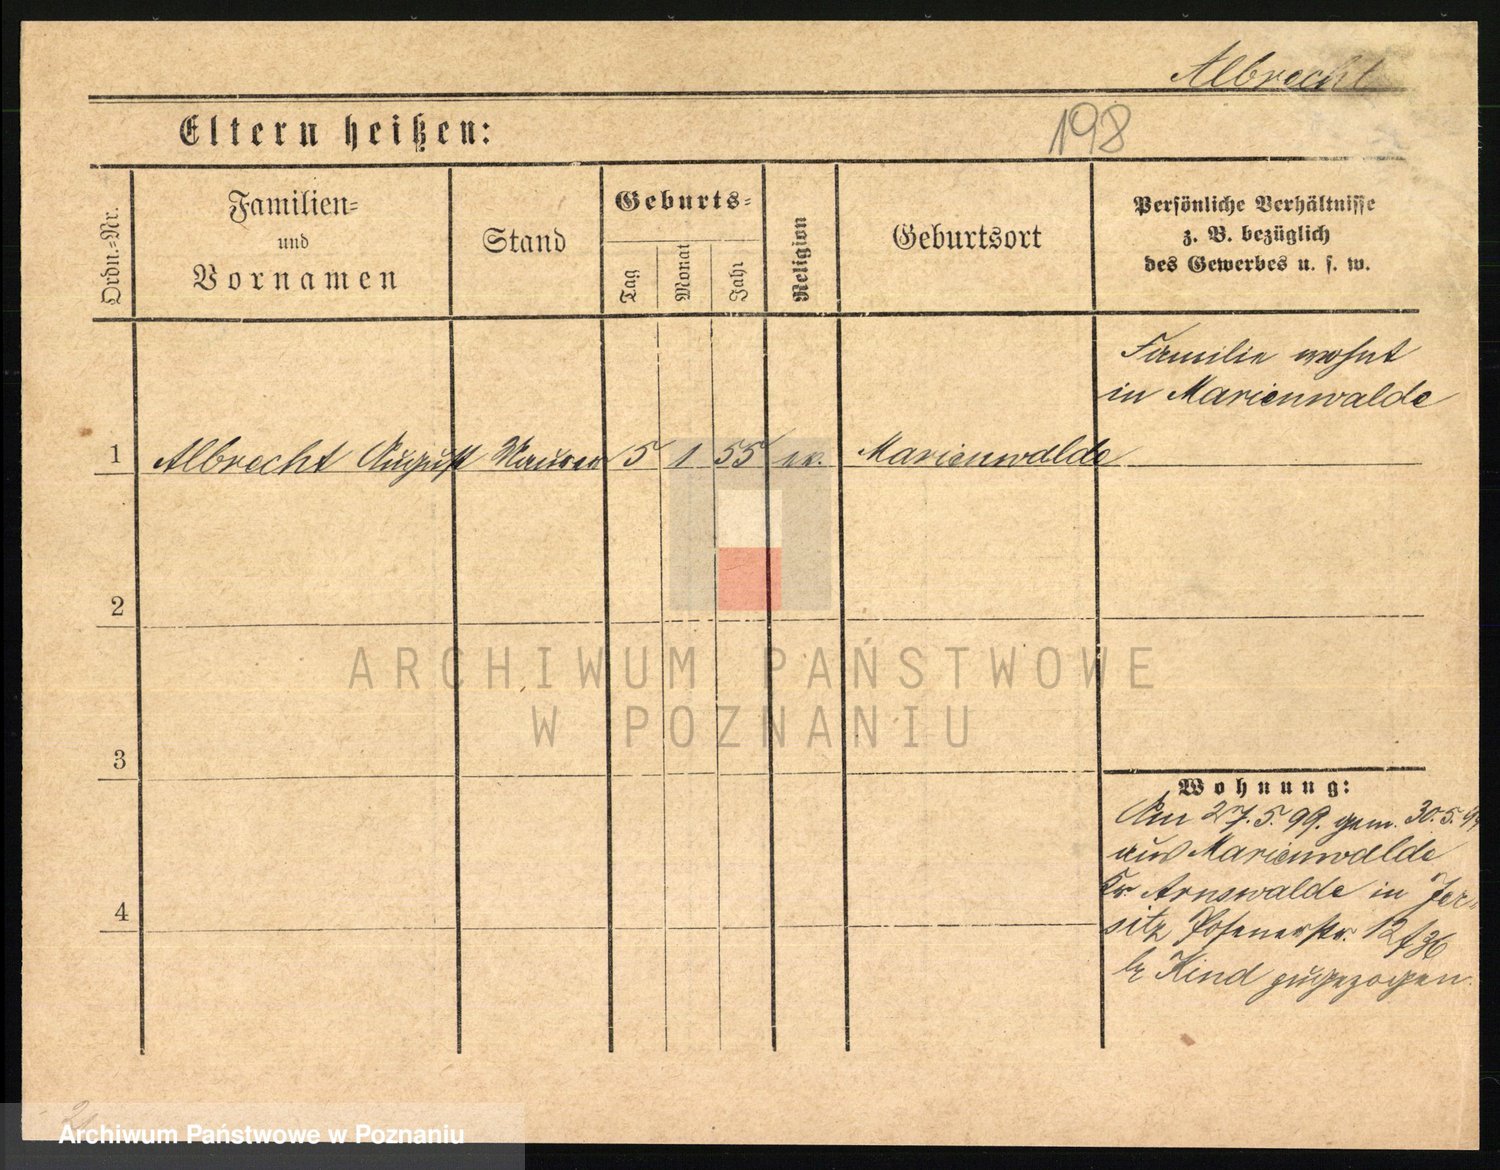 Albrecht
Eltern heißen:
198
Ordn.-Nr.
Familien-
und
Vornamen
Stand
Geburts-
Tag
Monat
Jahr
Religion
Geburtsort
Persönliche Verhältnisse
z. B. bezüglich
des Gewerbes u. s. w.
Familie wohnt
in Marienwalde
1 Albrecht August Maurer 5 1 55 ev. Marienwalde
2
ARCHIWUM PAŃSTWOWE
W POZNANIU
3
Wohnung:
Am 27.5.99. gem. 30.5.99
aus Marienwalde
Kr Arnswalde in Jer-
4
sitz Posenerstr. 12
b/ Kind zugezogen.
Archiwum Państwowe w Poznaniu